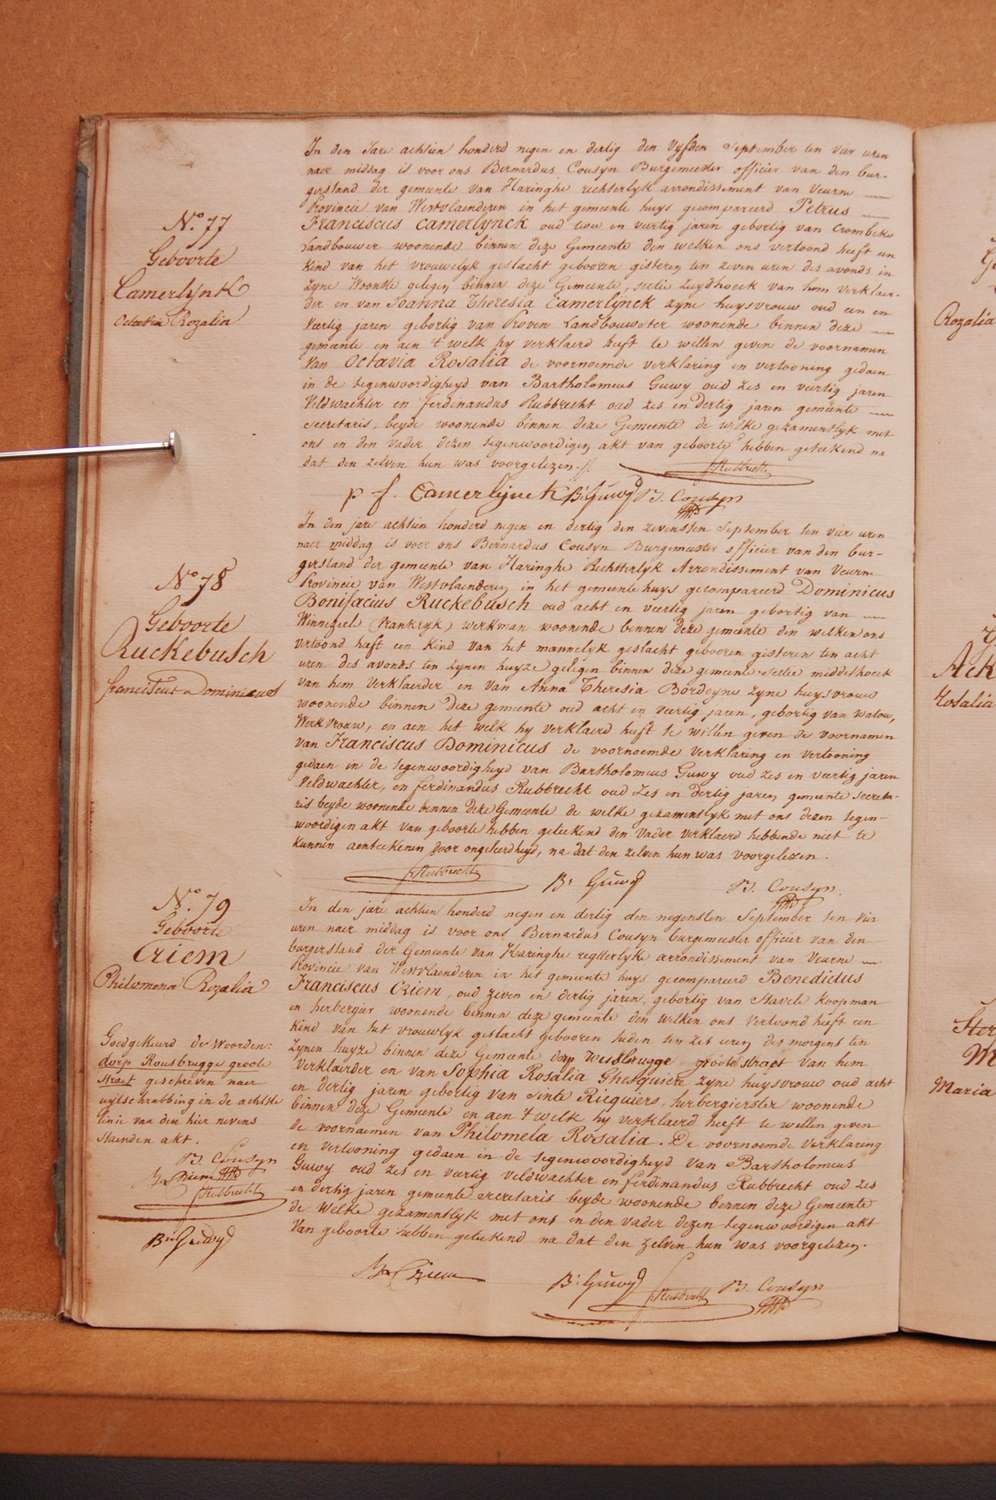 N.o 77
Geboorte
Camerlynck
Octavia Rozalia
In den Jare achtien honderd negen en dertig den vyfden September ten vier uren
naer middag is voor ons Bernardus Cousyn Burgemeester officier van den bur-
gerstand der gemeente van Haringhe rechterlyk arrondissement van Veurne
Provincie van Westvlaenderen in het gemeente huys gecompareerd Petrus
Franciscus Camerlynck oud twee en veertig jaren gebortig van Crombeke
Landbouwer woonende binnen deze Gemeente den welken ons vertoond heeft een
Kind van het vrouwelyk geslacht gebooren gisteren ten zeven uren des avonds in
zyne Woonste gelegen binnen deze Gemeente, sectie Zuydhoeck van hem verklaer-
der en van Joanna Theresia Camerlynck zyne huysvrouw oud een en
Veertig jaren gebortig van Proven Landbouwster woonende binnen deze
gemeente en aen 't welk hy verklaerd heeft te willen geven de voornamen
Van Octavia Rosalia de voornoemde verklaring en vertooning gedaen
in de tegenwoordigheyd van Bartholomeus Guwy oud zes en veertig jaren
Veldwachter en Ferdinandus Rubbrecht oud zes en dertig jaren gemeente
secretaris, beyde woonende binnen deze Gemeente de welke gezamentlyk met
ons en den Vader dezen tegenwoordigen akt van geboorte hebben geteekend na
dat den zelven hun was voorgelezen./.
F Rubbrecht
p f. Camerlynck B.r Guwy B. Cousyn
N.o 78
Geboorte
Ruckebusch
Franciscus Dominicus
In den jare achtien honderd negen en dertig den zevensten September ten vier uren
naer middag is voor ons Bernardus Cousyn Burgemeester officier van den bur-
gerstand der gemeente van Haringhe Rechterlyk Arrondissement van Veurne
Provincie van Westvlaenderen in het gemeente huys gecompareerd Dominicus
Bonifacius Ruckebusch oud acht en veertig jaren gebortig van
Winnezeel (Frankryk) werkman woonende binnen deze gemeente den welken ons
vertoond heeft een Kind van het mannelyk geslacht gebooren gisteren ten acht
uren des avonds ten zynen huyze gelegen binnen deze gemeente sectie middelhoeck
van hem Verklaerder en van Anna Theresia Bordeyne zyne huysvrouw
woonende binnen deze gemeente oud acht en veertig jaren, gebortig van watou,
Werkvrouw, en aen het welk hy verklaerd heeft te willen geven de voornamen
van Franciscus Dominicus de voornoemde verklaring en vertooning
gedaen in de tegenwoordigheyd van Bartholomeus Guwy oud zes en veertig jaren
Veldwachter, en Ferdinandus Rubbrecht oud zes en dertig jaren gemeente secreta-
ris beyde woonende binnen deze Gemeente de welke gezamentlyk met ons dezen tegen-
woordigen akt van geboorte hebben geteekend den Vader verklaerd hebbende niet te
kunnen aenteekenen door ongeleerdheyd, na dat den zelven hun was voorgelezen.
F Rubbrecht B.r Guwy B. Cousyn
N.o 79
Geboorte
Criem
Philomena Rozalia
Goedgekeurd de Woorden:
dorp Rousbrugge groote
straet geschreven naer
uytschrabbing in de achtste
linie van den hier nevens
staenden akt.
B. Cousyn
B.F. Criem
F Rubbrecht
B.r Guwy
In den jare achtien honderd negen en dertig den negensten September ten vier
uren naer middag is voor ons Bernardus Cousyn burgemeester officier van den
burgerstand der Gemeente van Haringhe regterlyk arrondissement van Veurne
Provincie van Westvlaenderen in het gemeente huys gecompareerd Benedictus
Franciscus Criem, oud zeven en dertig jaren, gebortig van Stavele koopman
en herbergier woonende binnen deze gemeente den welken ons vertoond heeft een
Kind van het vrouwlyk geslacht gebooren heden ten zes uren des morgens ten
zynen huyze binnen deze Gemeente dorp Rousbrugge groote straet van hem
Verklaerder en van Sophia Rosalia Ghesquiere zyne huysvrouw oud acht
en dertig jaren gebortig van Sinte Ricquiers, herbergierster woonende
binnen deze Gemeente en aen 't welk hy verklaerd heeft te willen geven
de voornaemen van Philomela Rosalia. De voornoemde verklaring
en vertooning gedaen in de tegenwoordigheyd van Bartholomeus
Guwy oud zes en veertig veldwachter en Ferdinandus Rubbrecht oud zes
en dertig jaren gemeente secretaris beyde woonende binnen deze Gemeente
de Welke gezamentlyk met ons en den vader dezen tegenwoordigen akt
Van geboorte hebben geteekend na dat den zelven hun was voorgelezen.
B.F. Criem B.r Guwy F Rubbrecht B. Cousyn
Rozalia
Ack
Rosalia
Ster
M
Maria